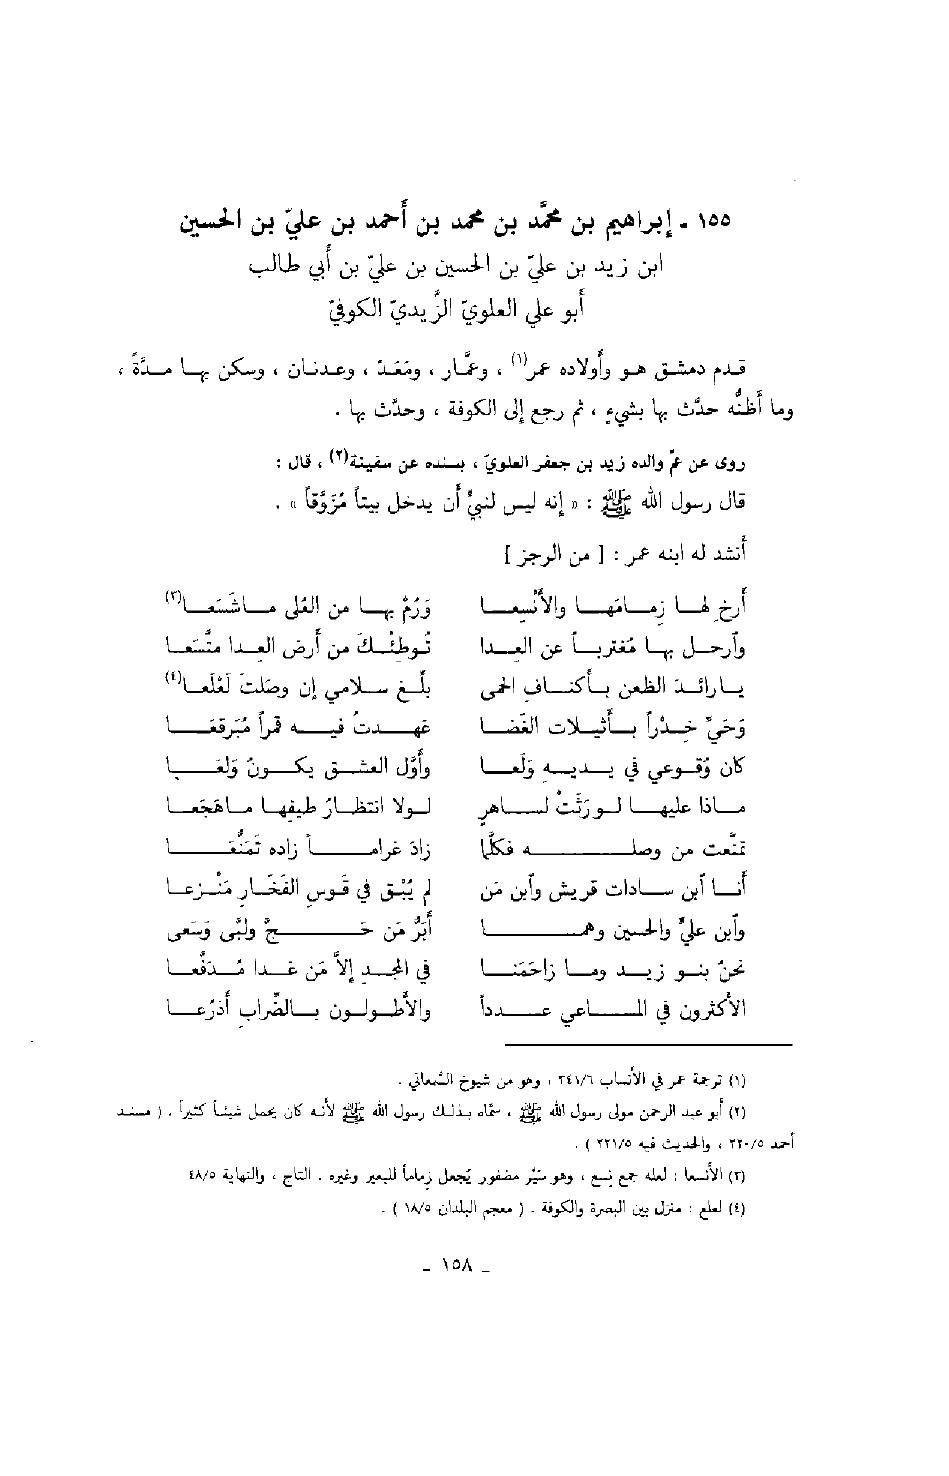 ١٥٥ - إبراهيم بن محمَّد بن محمد بن أحمد بن عليّ بن الحسين
ابن زيد بن عليّ بن الحسين بن عليّ بن أبي طالب
أبو علي العلويّ الزَّيديّ الكوفيّ
قدم دمشق هو وأولاده عمر(١) ، وعمَّار ، ومَعَدّ ، وعدنان ، وسكن بها مدَّةً ،
وما أظنُّه حدَّث بها بشيءٍ ، ثم رجع إلى الكوفة ، وحدَّث بها .
روى عن عمّ والده زيد بن جعفر العلويّ ، بسنده عن سفينة(٢) ، قال :
قال رسول الله ﷺ : « إنه ليس لنبيٍّ أن يدخل بيتاً مُزَوَّقاً » .
أنشد له ابنه عمر : [ من الرجز ]
أرخِ لها زمامَها والأنْسعا ورُمْ بها من العُلى ماشَسَعا(٣)
وآرحل بها مُغترباً عن العِدا تُوطِئْكَ من أرض العِدا متَّسَعا
يارائدَ الظعن بأكنافِ الحمى بلِّغ سلامي إن وصلتَ لَعْلَعا(٤)
وَحَيِّ خِدْراً بأثيلات الغَضا عَهدتُ فيه قمراً مُبَرقعا
كان وُقوعي في يديه وَلَعا وأوَّل العشق يكونُ وَلَعا
ماذا عليها لو رَثَتْ لساهرٍ لولا انتظارُ طيفِها ماهَجَعا
تمنَّعت من وصلهِ فكلَّما زادَ غراماً زاده تَمَنُّعا
أنا آبن سادات قريش وآبن مَن لم يُبْق في قَوس الفَخَار مَنْزِعا
وآبن عليٍّ والحسين وهما أبَرُّ مَن حَجَّ ولبَّى وَسَعى
نحنُ بنو زيد وما زاحَمَنا في المجد إلاَّ مَن غدا مُدَفَّعا
الأكثرون في المساعي عدداً والأطولون بالضِّرابِ أذرُعا
(١) ترجمة عمر في الأنساب ٣٤١/٦ ، وهو من شيوخ السَّمعاني .
(٢) أبو عبد الرحمن مولى رسول الله ﷺ ، سمَّاه بذلك رسول الله ﷺ لأنه كان يحمل شيئاً كثيراً . ( مسند
أحمد ٢٢٠/٥ ، والحديث فيه ٢٢١/٥ ) .
(٣) الأنسعا : لعله جمع نِسع ، وهو سَيْر مضفور يُجعل زماماً للبعير وغيره . التاج ، والنهاية ٤٨/٥
(٤) لعلع : منزل بين البصرة والكوفة . ( معجم البلدان ١٨/٥ ) .
- ١٥٨ -